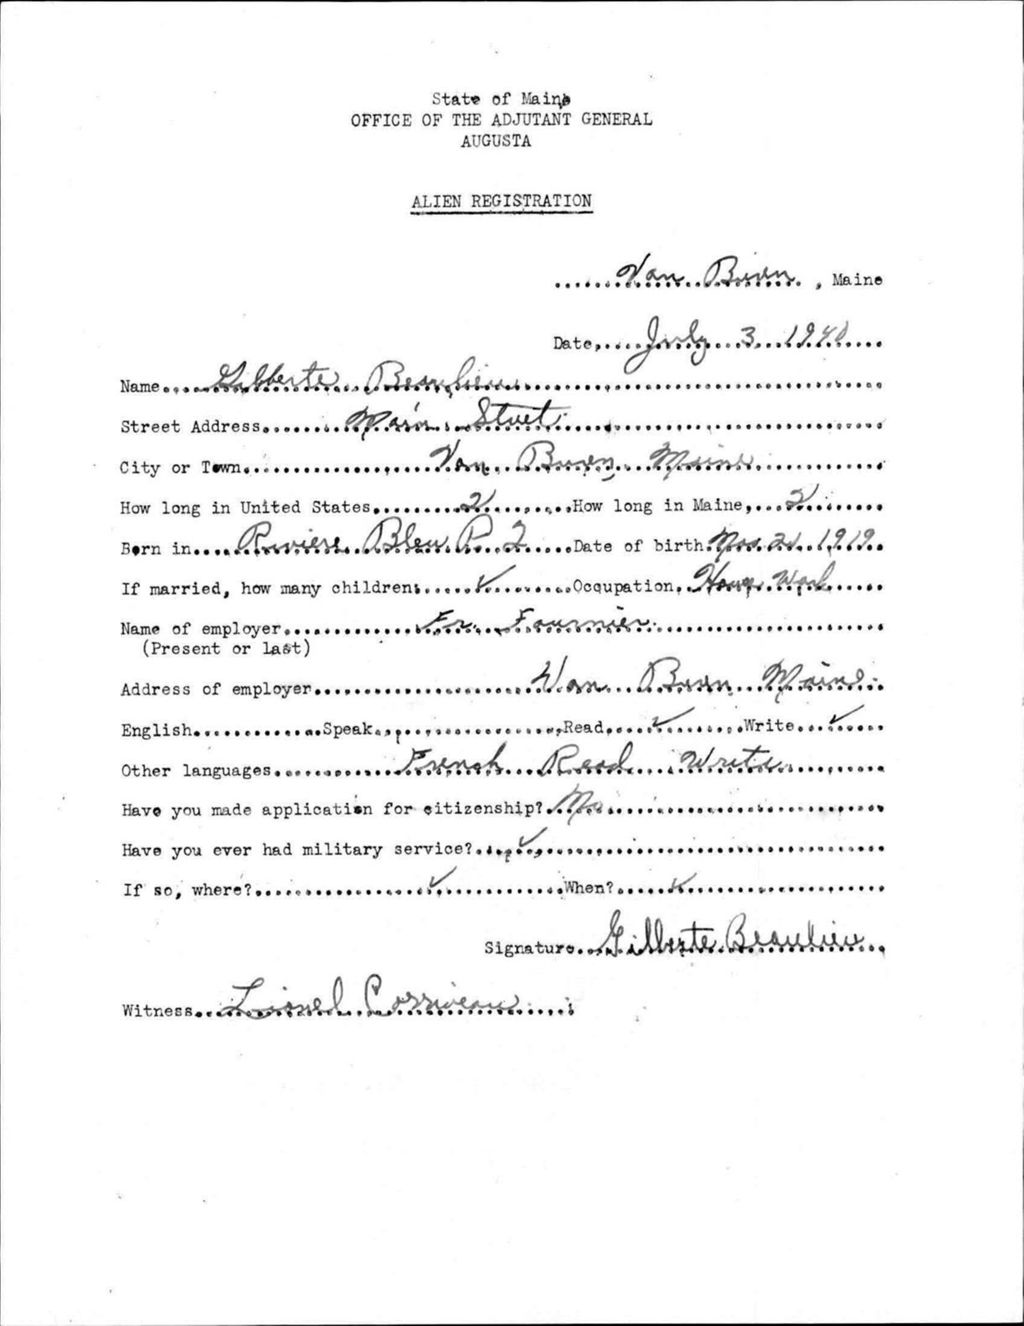 State of Maine
OFFICE OF THE ADJUTANT GENERAL
AUGUSTA
ALIEN REGISTRATION
Van Buren, Maine
Date, July 3 1940
Name Gilberte Beaulieu
Street Address Main Street
City or Town Van Buren Maine
How long in United States 2 How long in Maine, 2
Born in Riviere Bleu P. Q Date of birth 1919
If married, how many children ✓ Occupation House Work
Name of employer Fournier
(Present or last)
Address of employer Van Buren Maine
English Speak Read ✓ Write ✓
Other languages French Read Write
Have you made application for citizenship? No
Have you ever had military service? ✓
If so, where? ✓ When? ✓
Signature Gilberte Beaulieu
Witness Lionel Corriveau